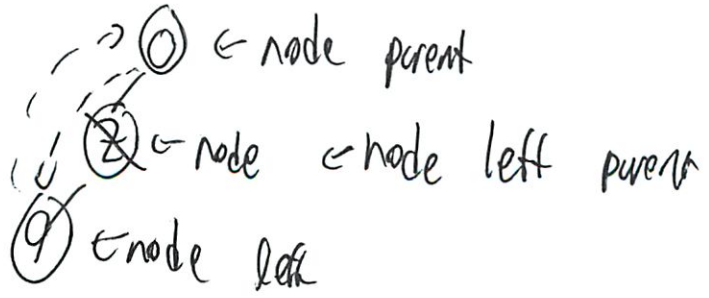 0 ← node parent
2 ← node ← node left parent
9 ← node left